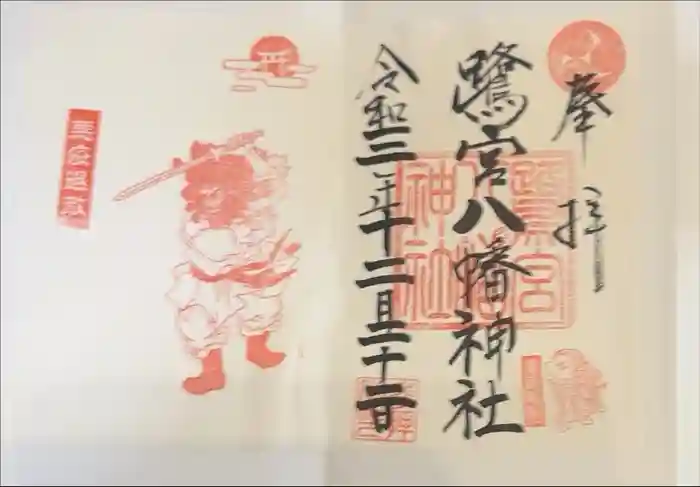 奉拝
鷺宮八幡神社
令和三年十二月
鷺宮
八幡
神社
悪疫退散